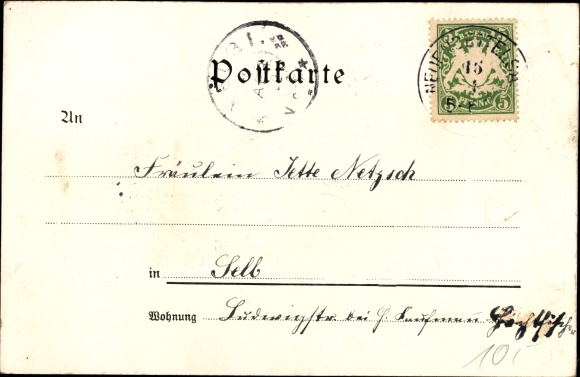 Postkarte
15
5 5
An
Fräulein Jette Netzsch
in Selb
Wohnung Ludwigstr bei H. Kaufmann
10,-